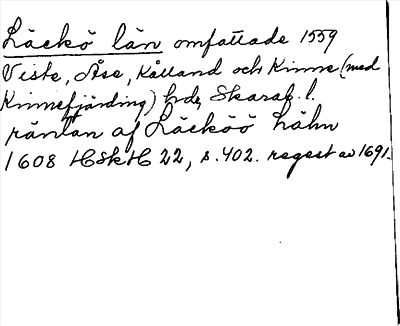 Läckö län omfattade 1559
Viste, Åse, Kålland och Kinne (med
Kinnefjärding) hrde, Skarab. l.
räntan af Läcköö Lähn
1608 HSkH 22, s. 402. regest av 1691.